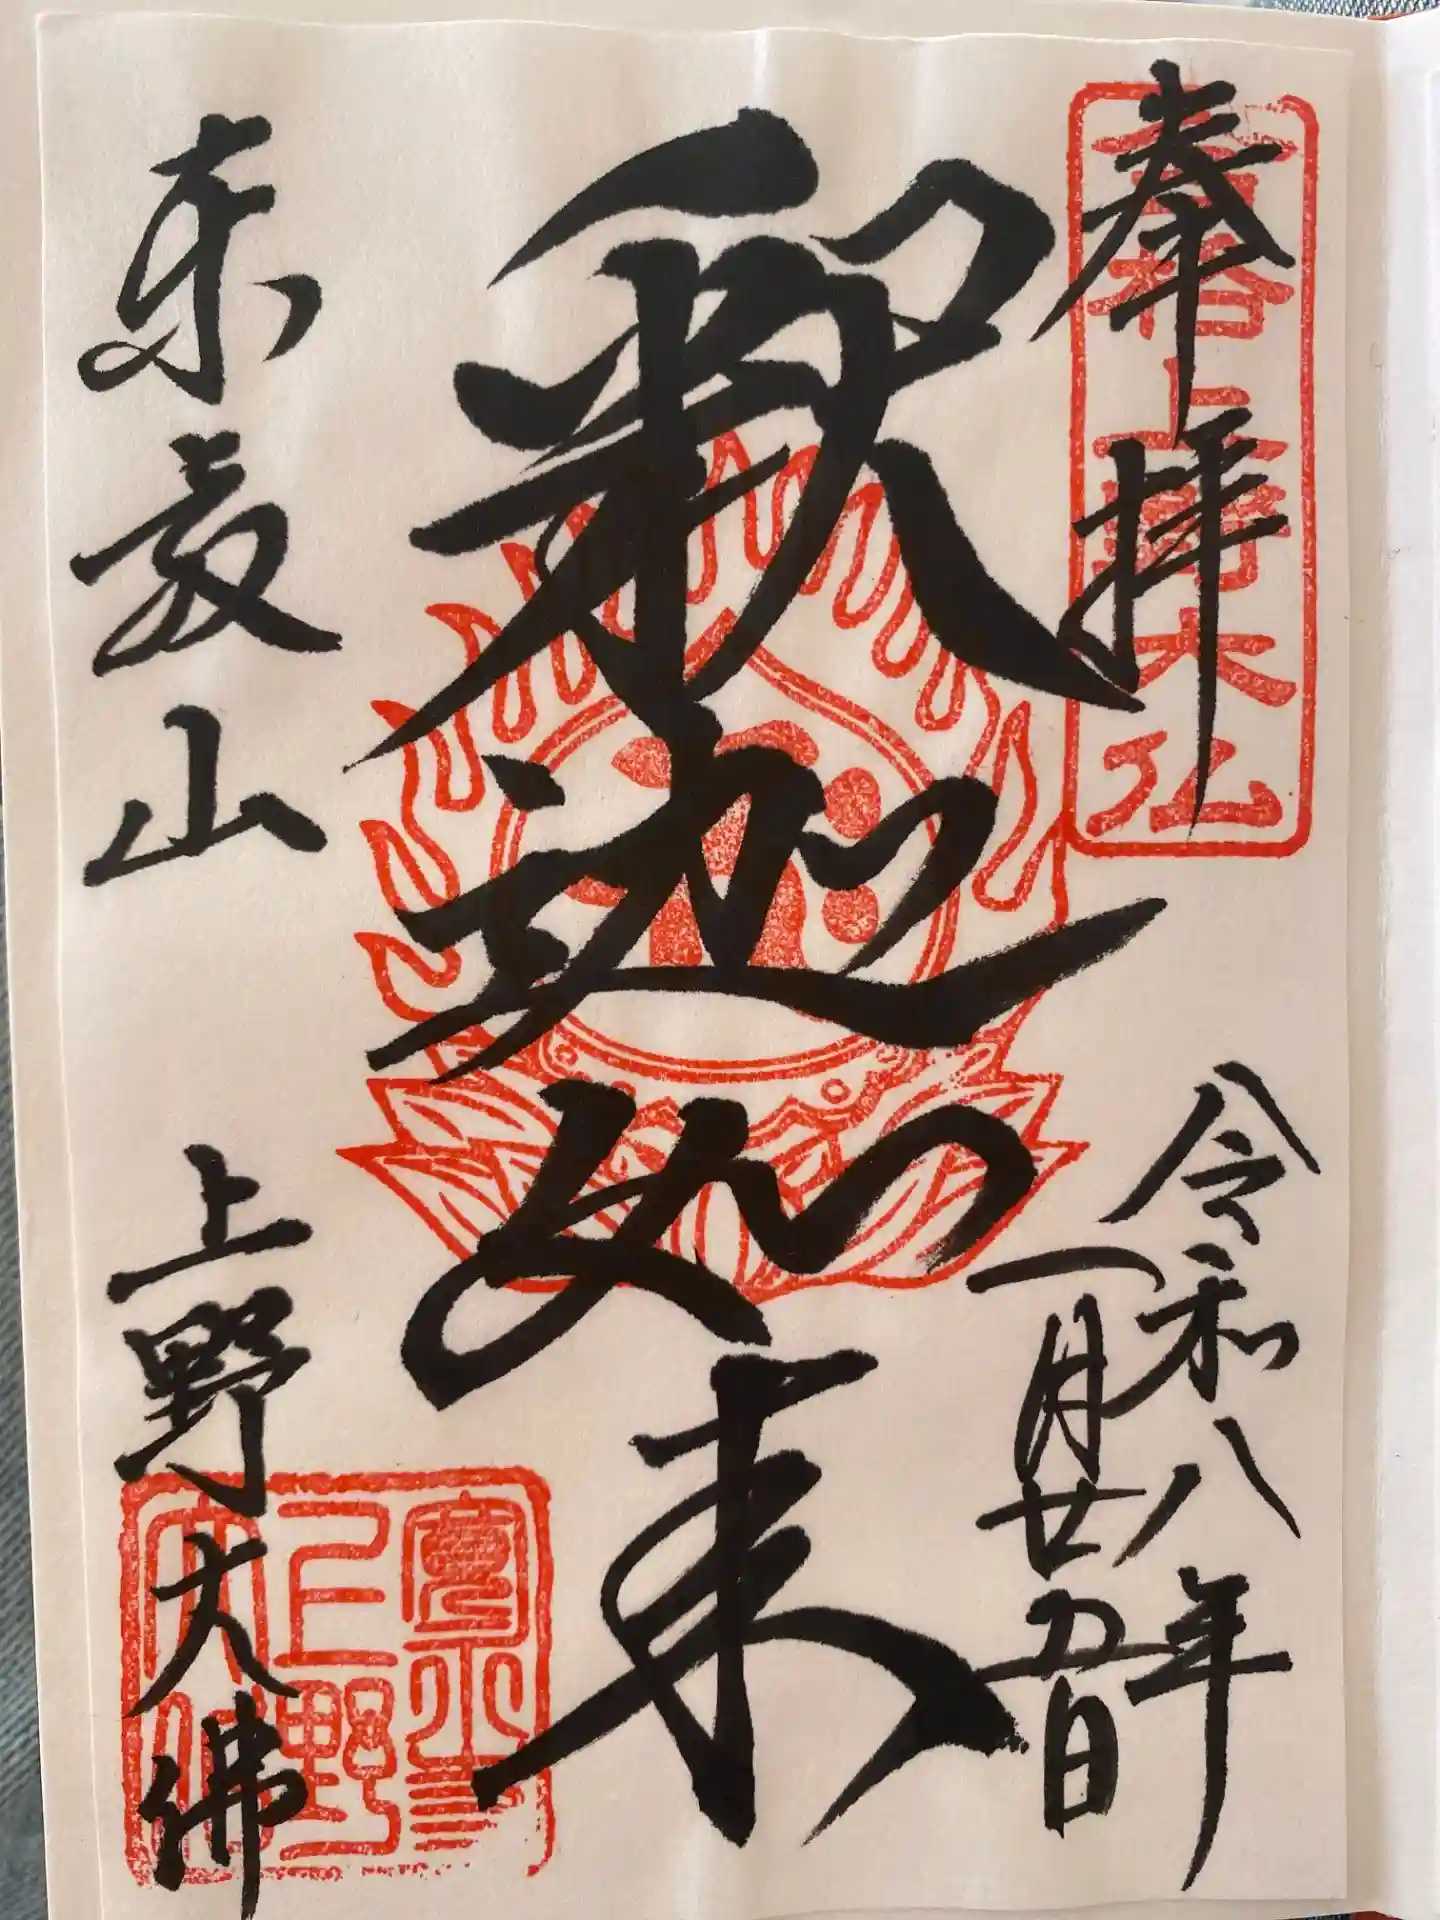 奉拝
上野大仏
令和八年
一月廿五日
釈迦如来
東叡山
上野大佛
寛永寺
上野
大佛